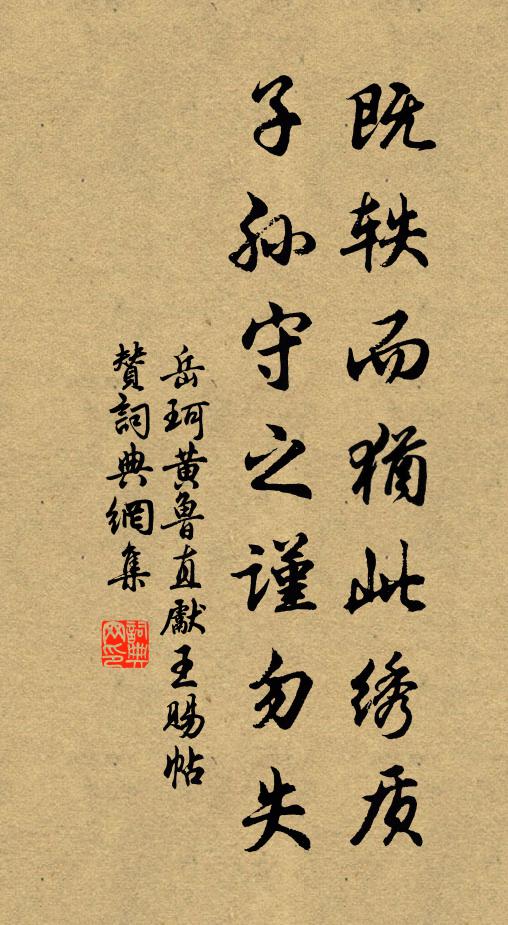 既轶而犹此绣质
子孙守之谨勿失
岳珂黄鲁直献王赐帖
赞词典網集
詞典網印